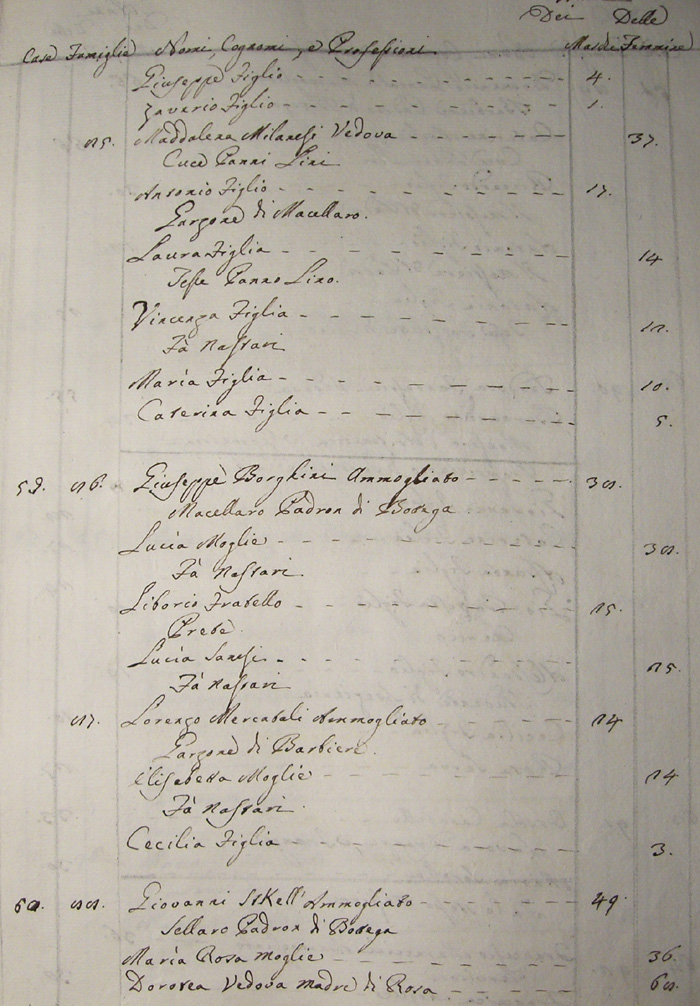 Dei Delle
Case Famiglie Nomi, Cognomi, e Professioni Maschi Femmine
Giuseppe Figlio 4.
Zaverio Figlio 1.
Maddalena Milanesi Vedova 37.
Cuce Panni Lini
Antonio Figlio 17.
Garzone di Macellaro.
Laura Figlia 14
Tesse Panno Lino.
Vincenza Figlia
Fà Nastari
Maria Figlia 10.
Caterina Figlia 5.
59. Giuseppe Borghini Ammogliato
Macellaro Padron di Botega
Lucia Moglie
Fà Nastari
Liborio Fratello
Prete
Lucia Sanesi
Fà Nastari
Lorenzo Mercatali Ammogliato
Garzone di Barbiere
Elisabetta Moglie
Fà Nastari
Cecilia Figlia 3.
60. Giovanni Ammogliato 49.
Sellaro Padron di Botega
Maria Rosa Moglie 36.
Dorotea Vedova madre di Rosa